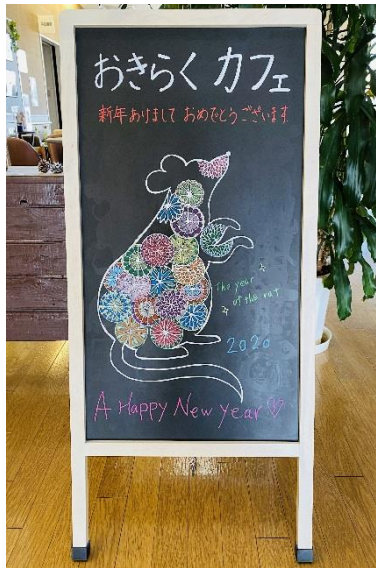 おきらくカフェ
新年あけまして おめでとうございます
The year
of the rat
2020
A Happy New Year♡